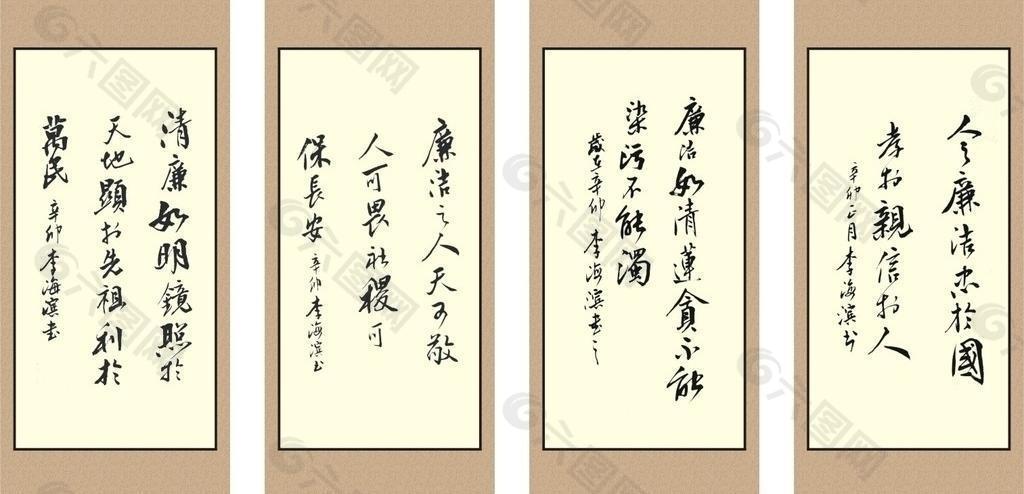 清廉如明鏡照於
天地顯於先祖利於
萬民 辛卯李海濱書
廉洁之人天可敬
人可畏社稷可
保長安 辛卯李海濱书
廉洁如清蓮貪不能
染污不能濁
歲在辛卯李海濱書之
人之廉洁忠於國
孝於親信於人
辛卯正月李海濱书
六图网